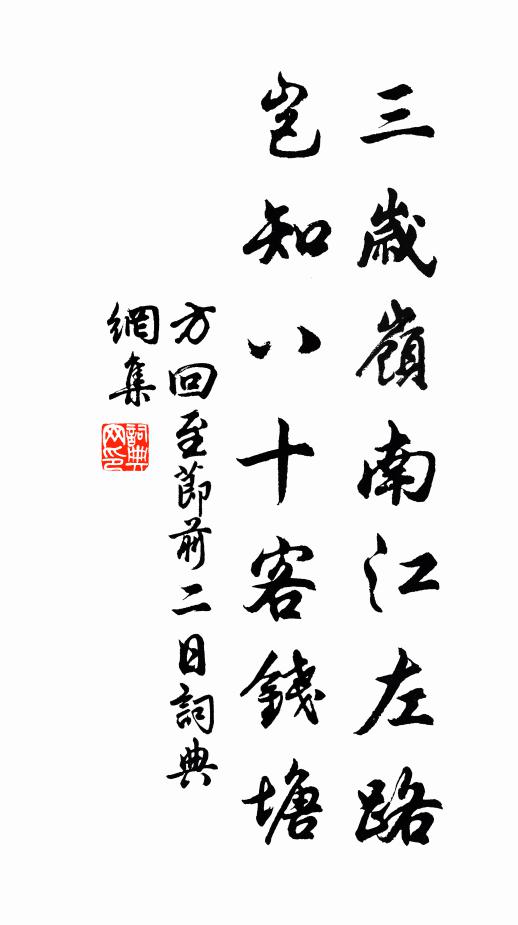 三歲嶺南江左路
豈知八十客錢塘
方回至節前二日詞典
網集
詞典
网印